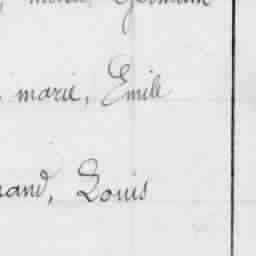 Germain
marie, Emile
rand, Louis